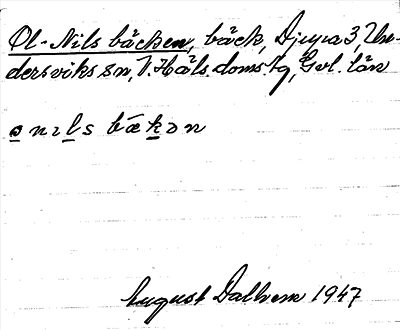 Ol-Nils bäcken, bäck, Djupa 3, Un-
dersviks sn, V. Häls. doms. tg, Gvl. län
ɷnɪls bækən
August Dalhem 1947